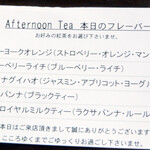 Afternoon Tea 本日のフレーバー
お好みの紅茶をお選び下さいませ。
ーヨークオレンジ(ストロベリー・オレンジ・マン
ーベリーライチ(ブルーベリー・ライチ)
ナグイハオ(ジャスミン・アプリコット・ヨーグル
バンナ(ブラックティー)
ロイヤルミルクティー(ラクサパンナ・ルール
本日はご来店頂きまして誠にありがとうございます
こころゆくまでごゆっくりお過ごし下さいませ。